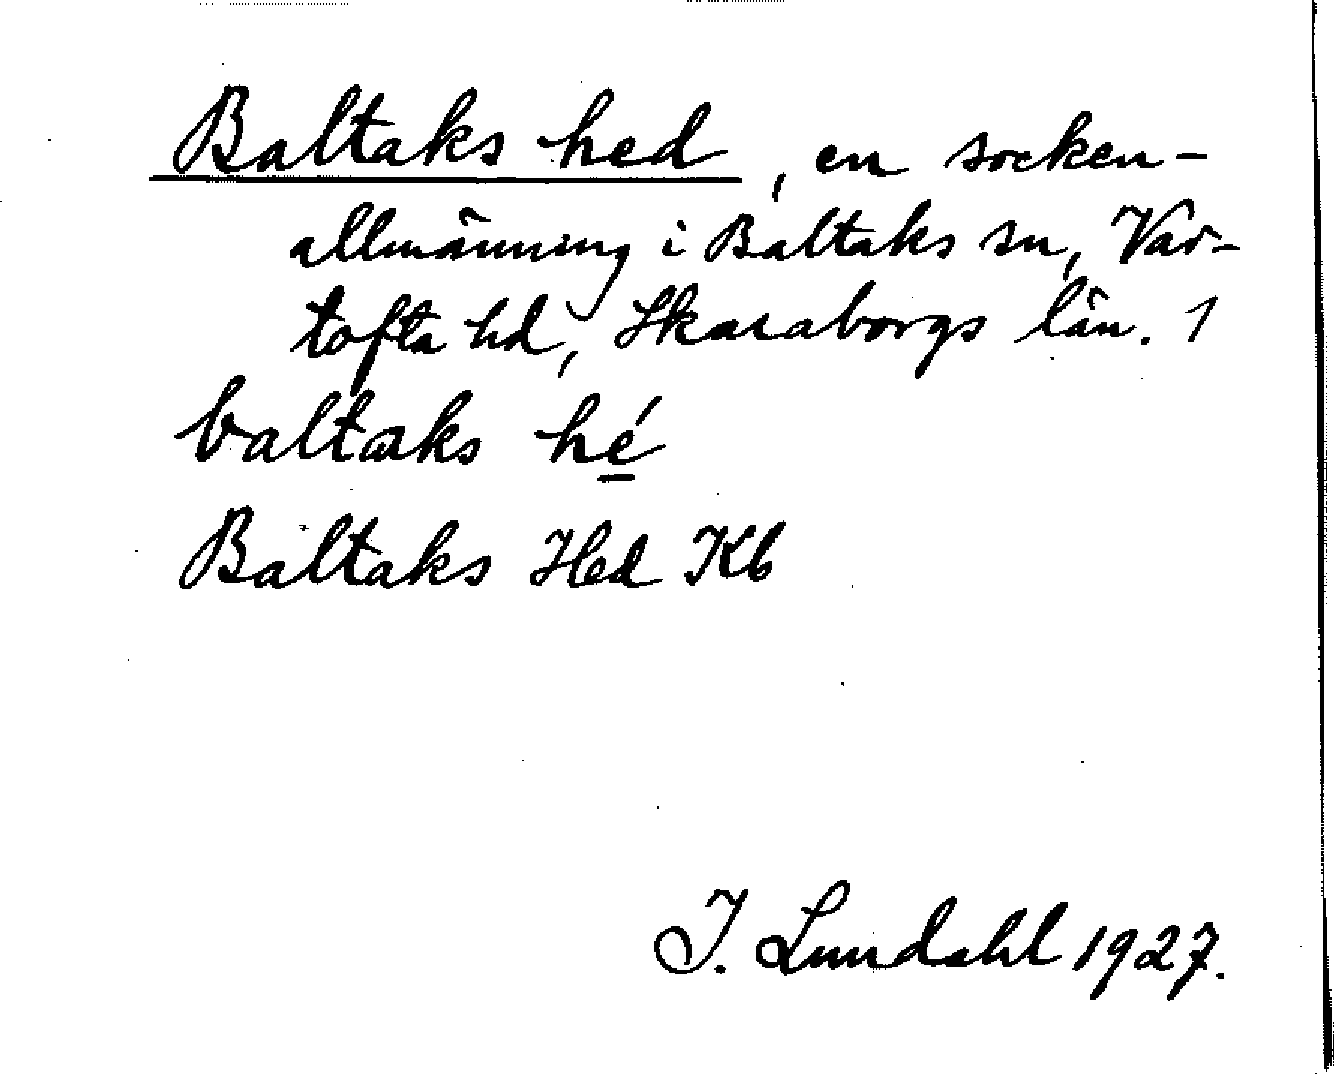 Baltaks hed, en socken-
allmänning i Baltaks sn, Var-
tofta hd, Skaraborgs län. 1
baltaks hé
Baltaks Hed Kb
I. Lundahl 1927.